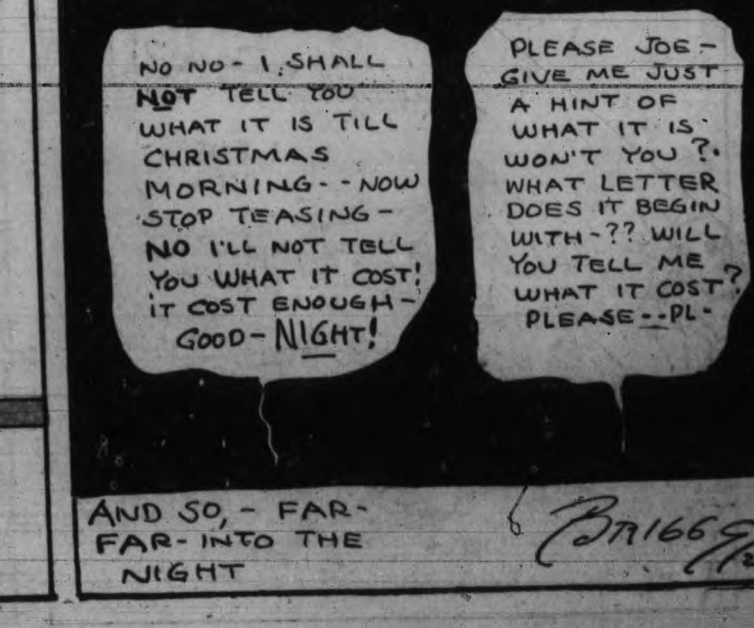 NO NO - I SHALL
NOT TELL YOU
WHAT IT IS TILL
CHRISTMAS
MORNING - - NOW
STOP TEASING -
NO I'LL NOT TELL
YOU WHAT IT COST!
IT COST ENOUGH -
GOOD - NIGHT!
PLEASE JOE -
GIVE ME JUST
A HINT OF
WHAT IT IS
WON'T YOU?
WHAT LETTER
DOES IT BEGIN
WITH - ?? WILL
YOU TELL ME
WHAT IT COST?
PLEASE - - PL -
AND SO, - FAR -
FAR - INTO THE
NIGHT
BRIGGS